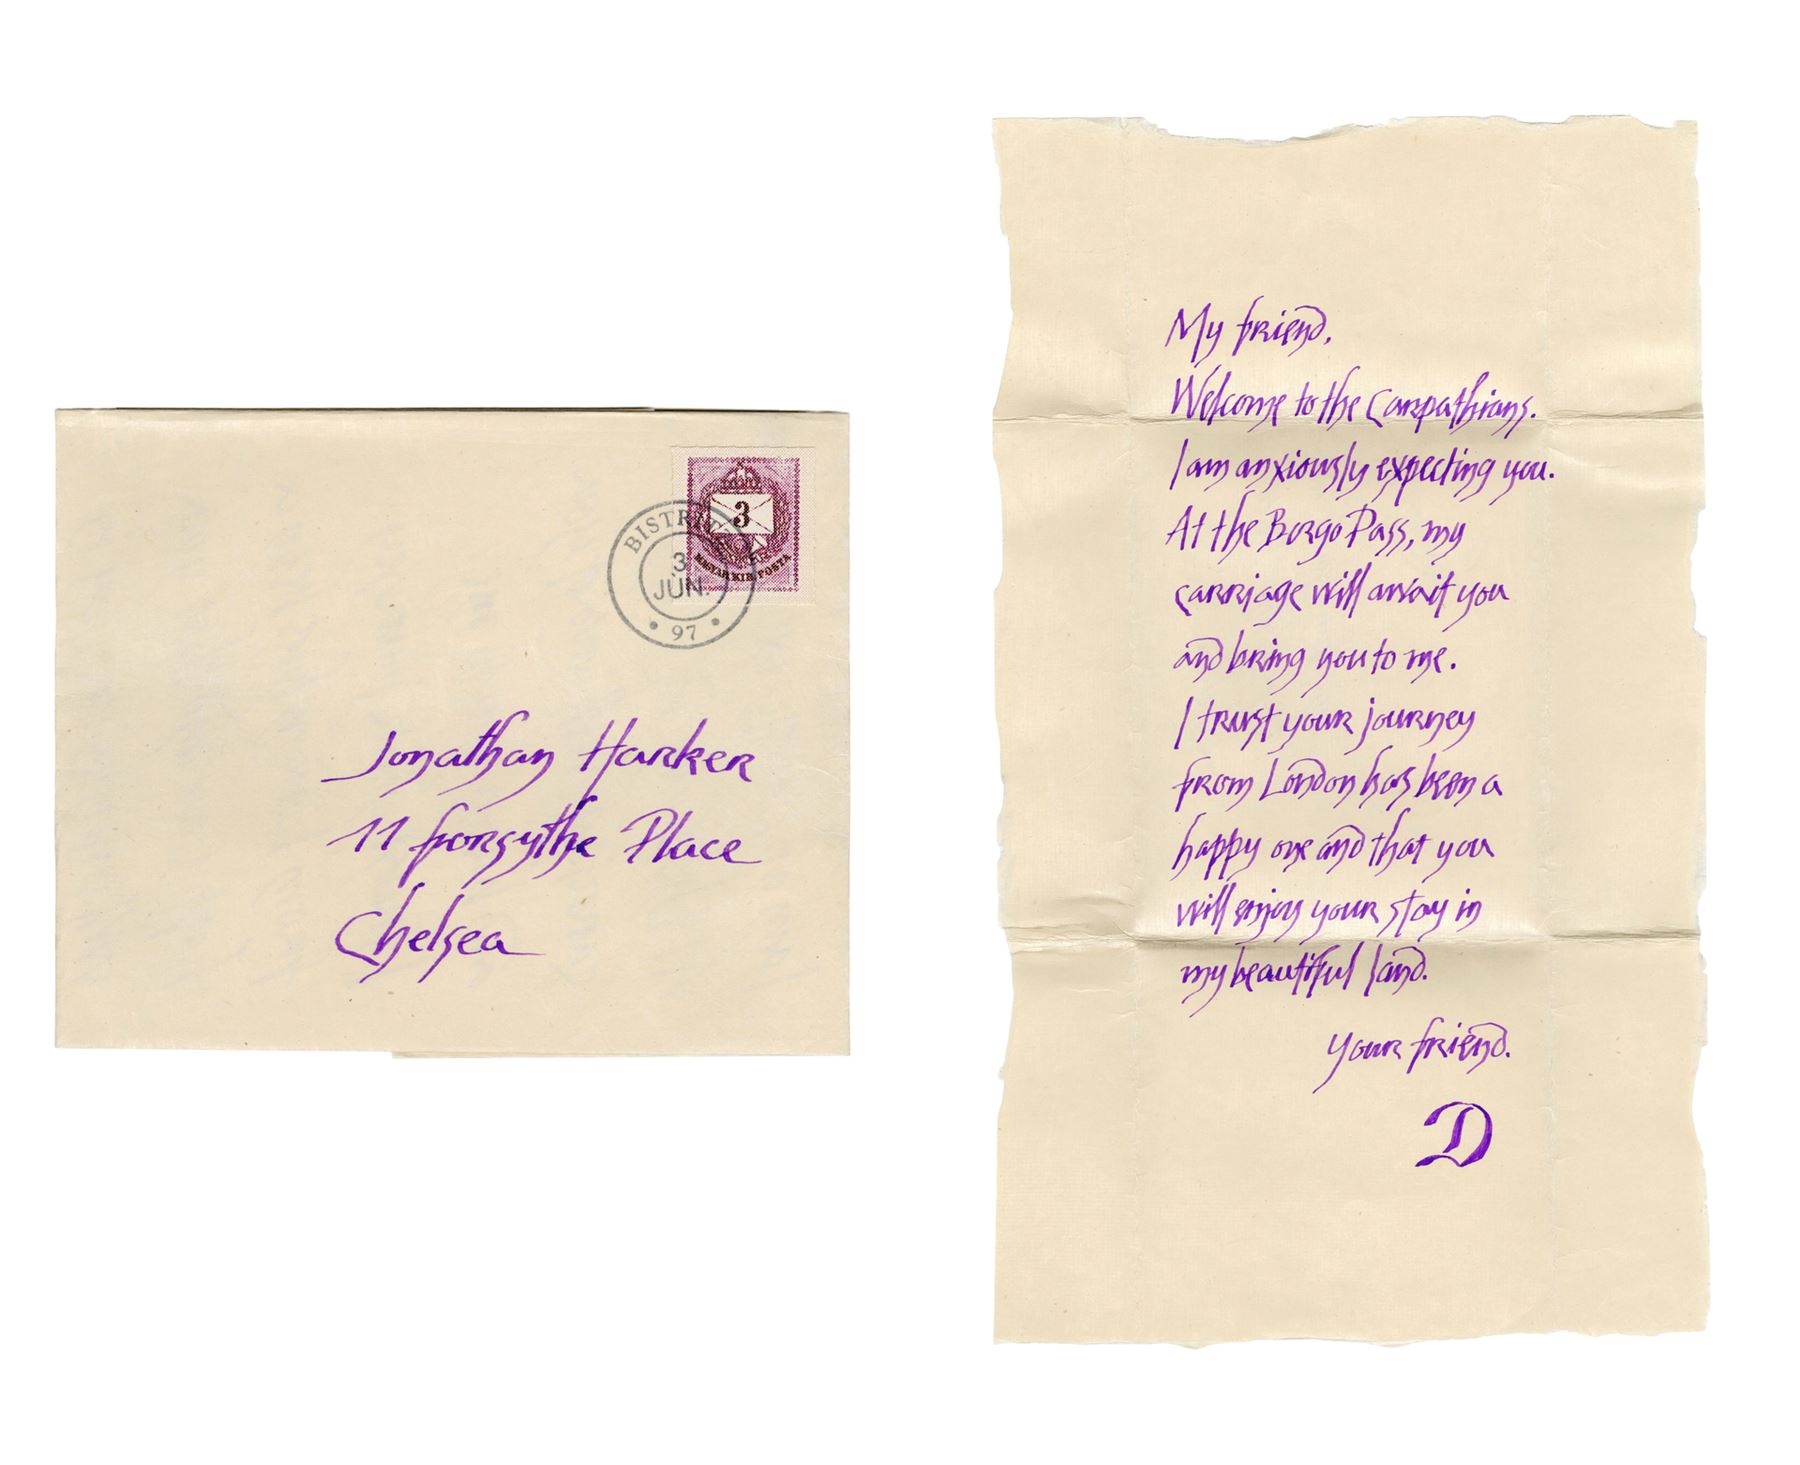 3
MAGYAR KIR. POSTA
3
JUN.
97
Jonathan Harker
11 forsythe Place
Chelsea
My friend,
Welcome to the Carpathians.
I am anxiously expecting you.
At the Borgo Pass, my
carriage will await you
and bring you to me.
I trust your journey
from London has been a
happy one and that you
will enjoy your stay in
my beautiful land.
Your friend.
D